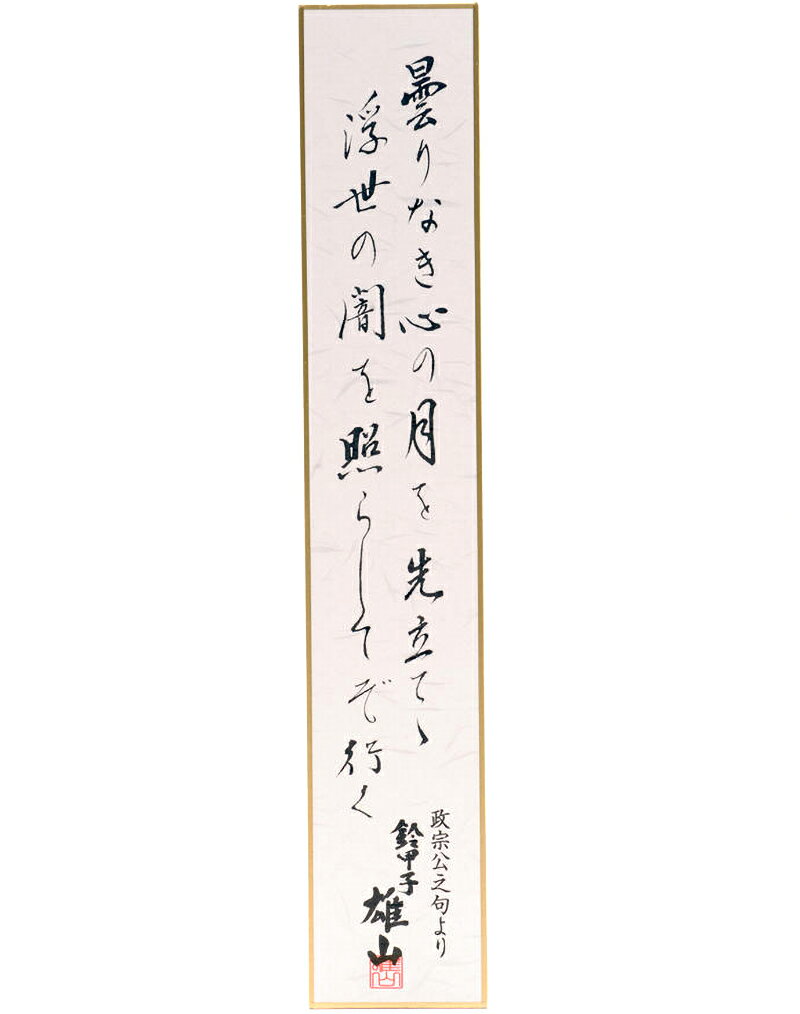 曇りなき心の月を先立てゝ
浮世の闇を照らしてぞ行く
政宗公之句より
鈴甲子
雄山